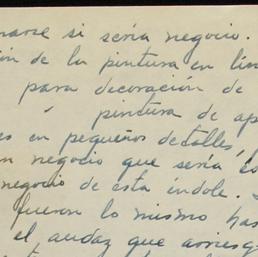 narse si sería negocio.
ión de la pintura en lin
para decoración de
ó pintura de ap
es en pequeños detalles,
un negocio que sería co
negocio de esta índole.
fueron lo mismo has
el audaz que arriesg